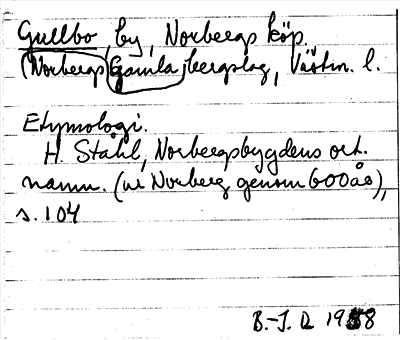 Gullbo, by, Norbergs köp.
(Norbergs Gamla bergslag, Västm. l.
Etymologi.
H. Ståhl, Norbergsbygdens ort-
namn. (ur Norberg genom 600 år),
s. 104
B.-J. D 1958